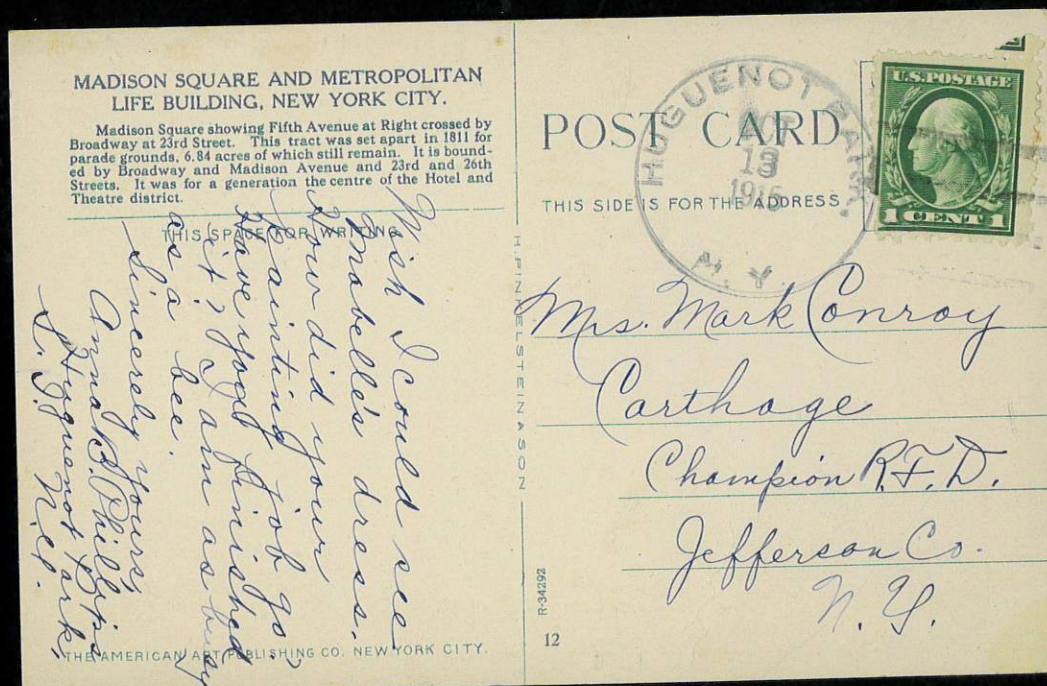 MADISON SQUARE AND METROPOLITAN
LIFE BUILDING, NEW YORK CITY.
Madison Square showing Fifth Avenue at Right crossed by
Broadway at 23rd Street. This tract was set apart in 1811 for
parade grounds, 6.84 acres of which still remain. It is bound-
ed by Broadway and Madison Avenue and 23rd and 26th
Streets. It was for a generation the centre of the Hotel and
Theatre district.
THIS SPACE FOR WRITING
Wish I could see
Mabelle's dress.
How did your
Painting job go?
Have you finished
it? I am as busy
as a bee.
Sincerely yours,
Anna B. Phillips
Huguenot Park,
S. I. N.Y.
THE AMERICAN ART PUBLISHING CO. NEW YORK CITY.
H. FINKELSTEIN & SON
R-34292
12
POST CARD
THIS SIDE IS FOR THE ADDRESS
HUGUENOT PARK.
OCT
13
1916
N.Y.
U.S. POSTAGE
1 CENT 1
Mrs. Mark Conroy
Carthage
Champion R.F.D.
Jefferson Co.
N. Y.